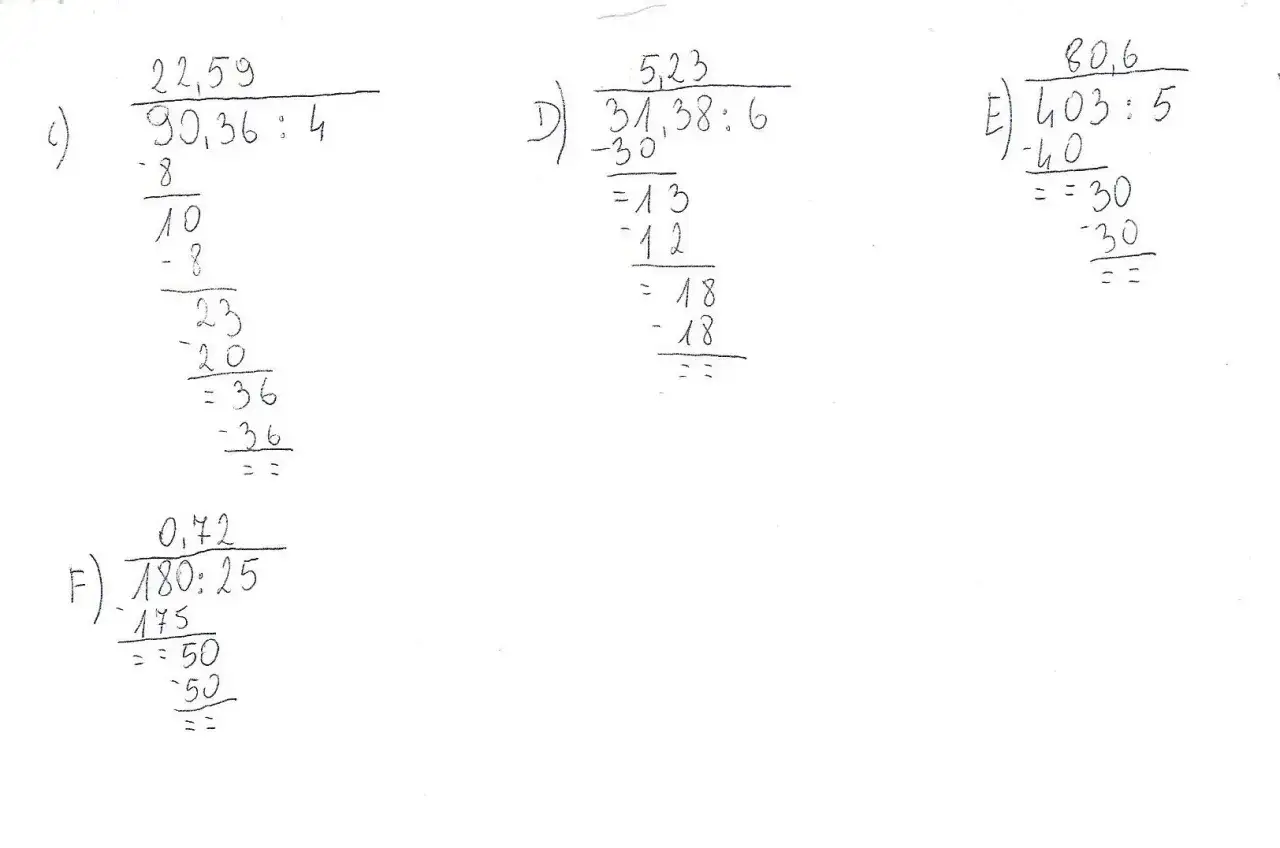 C)
22,59
90,36 : 4
-8
10
-8
23
-20
= 36
-36
= =
D)
5,23
31,38 : 6
-30
= 13
-12
= 18
-18
= =
E)
80,6
403 : 5
-40
= = 30
-30
= =
F)
0,72
180 : 25
-175
= = 50
-50
= =